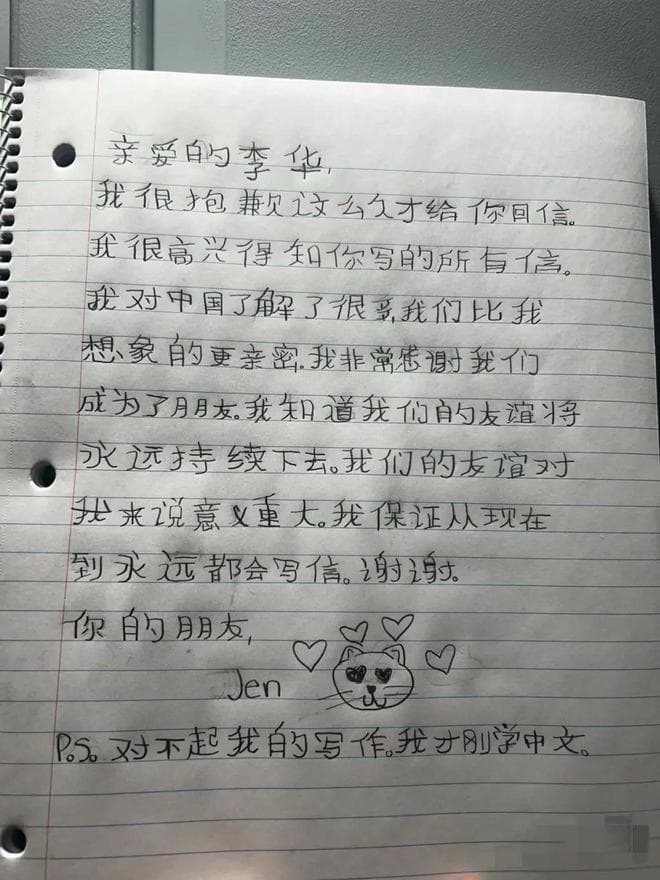 亲爱的李华,
我很抱歉这么久才给你回信。
我很高兴得知你写的所有信。
我对中国了解了很多,我们比我
想象的更亲密.我非常感谢我们
成为了朋友。我知道我们的友谊将
永远持续下去。我们的友谊对
我来说意义重大。我保证从现在
到永远都会写信。谢谢。
你的朋友,
Jen
P.S. 对不起我的写作。我才刚学中文。